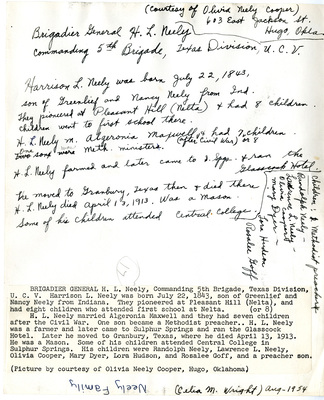 (courtesy of Olivia Neely Cooper)
603 East Jackson St.
Hugo, Okla
Brigadier General H. L. Neely
Commanding 5th Brigade, Texas Division, U. C. V.
Harrison L. Neely was born July 22, 1843,
son of Greenlief and Nancy Neely from Ind.
They pioneered at Pleasant Hill (Nelta) & had 8 children.
Children went to first school there.
H. L. Neely m. Algeronia Maxwell & had 7 children
(after Civil War) or 8
One son were Meth. ministers.
H. L. Neely farmed and later came to S. Spgs & ran the
Glasscock Hotel.
He moved to Granbury, Texas then & died there
H. L. Neely died April 13, 1913. Was a Mason.
Some of his children attended Central College
Children: I Methodist preacher
Randolph Neely
Lawrence L. Neely
Olivia Cooper
Mary Dyer
Lora Hudson
Rosalee Goff
BRIGADIER GENERAL H. L. Neely, Commanding 5th Brigade, Texas Division,
U. C. V. Harrison L. Neely was born July 22, 1843, son of Greenlief and
Nancy Neely from Indiana. They pioneered at Pleasant Hill (Nelta), and
had eight children who attended first school at Nelta. (or 8)
H. L. Neely married Algeronia Maxwell and they had seven children
after the Civil War. One son became a Methodist preacher. H. L. Neely
was a farmer and later came to Sulphur Springs and ran the Glasscock
Hotel. Later he moved to Granbury, Texas, where he died April 13, 1913.
He was a Mason. Some of his children attended Central College in
Sulphur Springs. His children were Randolph Neely, Lawrence L. Neely,
Olivia Cooper, Mary Dyer, Lora Hudson, and Rosalee Goff, and a preacher son.
(Picture by courtesy of Olivia Neely Cooper, Hugo, Oklahoma)
Neely Family
(Celia M. Wright) Aug. 1954